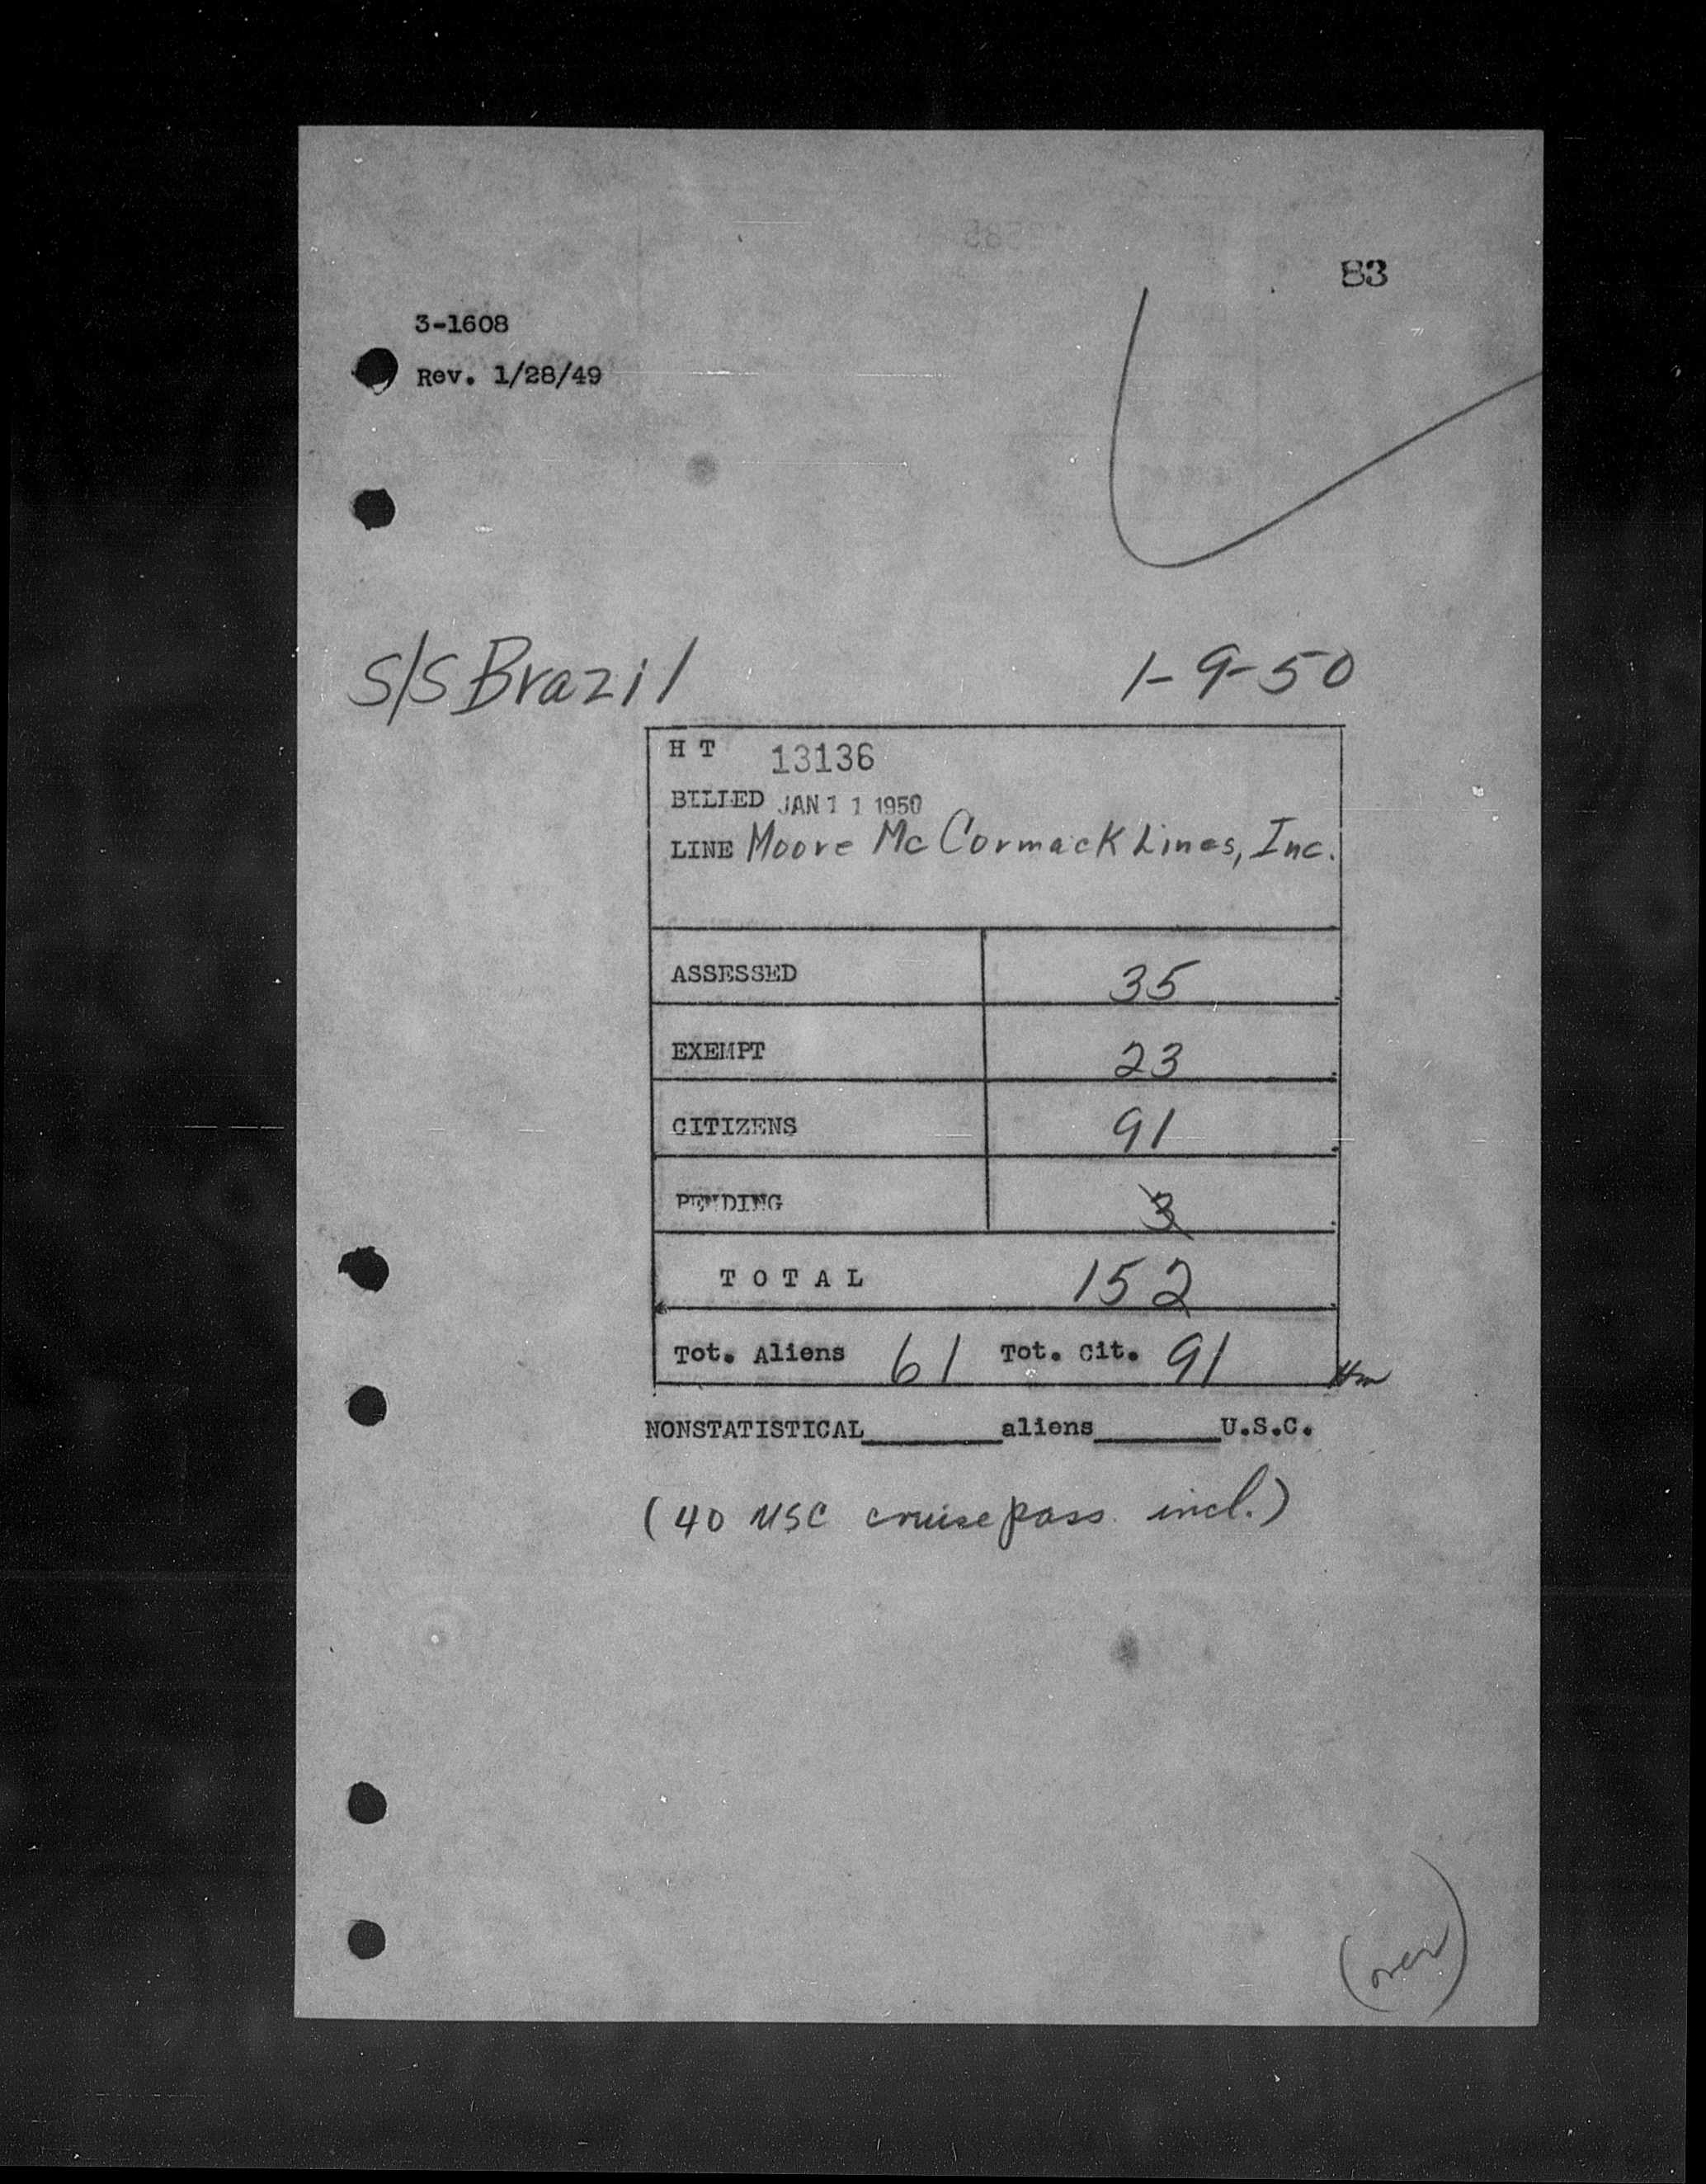 83
3-1608
Rev. 1/28/49
S/S Brazil 1-9-50
H T 13136
BILLED JAN 11 1950
LINE Moore McCormack Lines, Inc.
ASSESSED 35
EXEMPT 23
CITIZENS 91
PENDING 3
TOTAL 152
Tot. Aliens 61 Tot. Cit. 91
NONSTATISTICAL________aliens_______U.S.C.
(40 USC cruise pass. incl.)
(over)